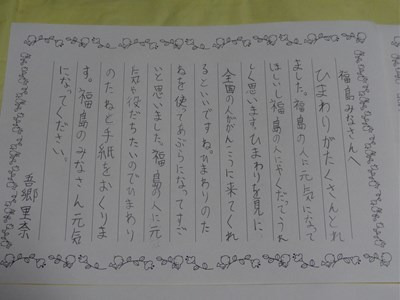 福島みなさんへ
ひまわりがたくさんとれ
ました。福島の人に元気になって
ほしいし福島の人にやくだってうれ
しく思います。ひまわりを見に、
全国の人がかんこうに来てくれ
るといいですね。ひまわりのた
ねを使ってあぶらになってすご
いと思いました。福島の人に元
気や役だちたいのでひまわり
のたねと手紙をおくりま
す。福島のみなさん元気
になってください。
吾郷里奈